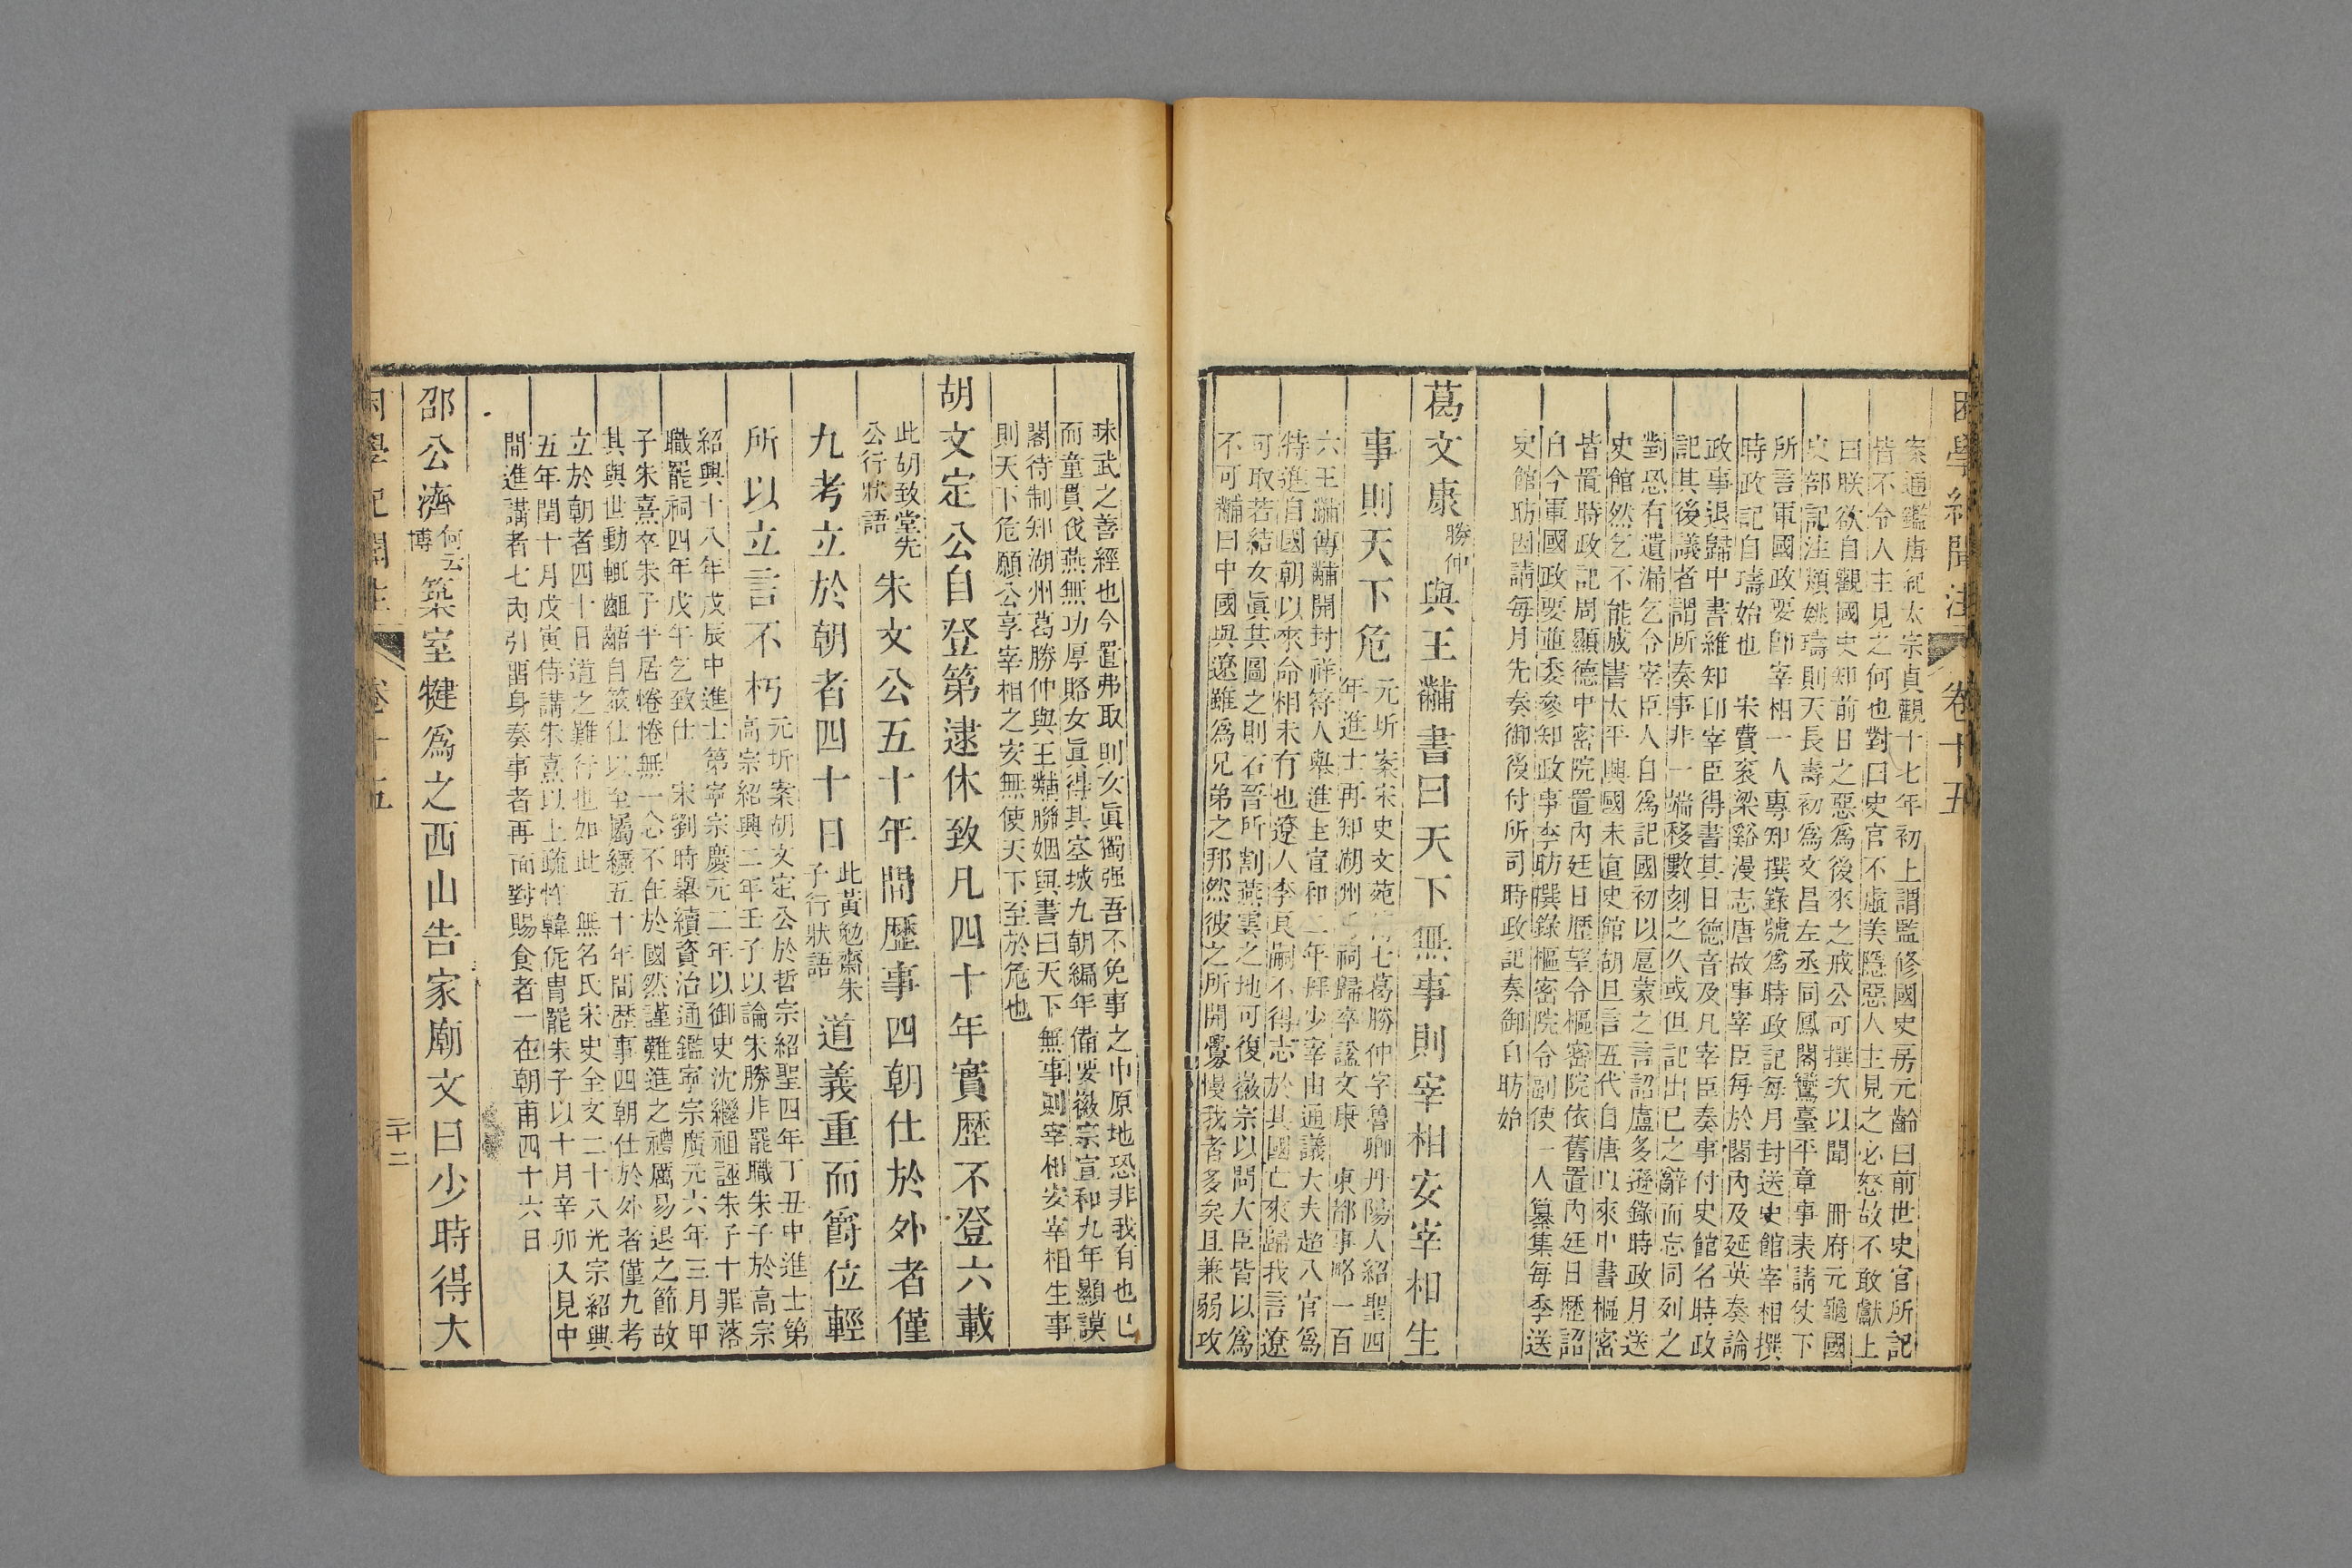 困學紀聞注 卷十五
案通鑑唐紀太宗貞觀十七年初上謂監修國史房元齡曰前世史官所記
皆不令人主見之何也對曰史官不虛美隱惡人主見之必怒故不敢獻上
曰朕欲自觀國史知前日之惡為後來之戒公可撰次以聞 冊府元龜國
史部記注類姚璹則天長壽初為文昌左丞同鳳閣鸞臺平章事表請仗下
所言軍國政要卽宰相一人專知撰錄號為時政記每月封送史館宰相撰
時政記自璹始也 宋費袞梁谿漫志唐故事宰臣每於閣內及延英奏論
政事退歸中書維知印宰臣得書其日德音及凡宰臣奏事付史館名時政
記其後議者謂所奏事非一端移數刻之久或但記出已之辭而忘同列之
對恐有遺漏乞令宰臣人自為記國初以扈蒙之言詔盧多遜錄時政月送
史館然乞不能成書太平興國末直史館胡旦言五代自唐以來中書樞密
皆置時政記周顯德中密院置內廷日歷望令樞密院依舊置內廷日歷詔
自今軍國政要並委參知政事李昉撰錄樞密院令副使一人纂集每季送
史館昉因請每月先奏御後付所司時政記奏御自昉始
葛文康勝仲與王黼書曰天下無事則宰相安宰相生
事則天下危元圻案宋史文苑傳七葛勝仲字魯卿丹陽人紹聖四
年進士再知湖州 祠歸卒諡文康 東都事略一百
六王黼傳黼開封祥符人舉進士宣和二年拜少宰由通議大夫超八官為
特進自國朝以來命相未有也遼人李良嗣不得志於其國亡來歸我言遼
可取若結女眞共圖之則石晉所割燕雲之地可復徽宗以問大臣皆以為
不可黼曰中國與遼雖為兄弟之邦然彼之所開釁慢我者多矣且兼弱攻
昧武之善經也今置弗取則女眞獨强吾不免事之中原地恐非我有也已
而童貫伐燕無功厚賂女眞得其空城九朝編年備要徽宗宣和九年顯謨
閣待制知湖州葛勝仲與王黼聯姻與書曰天下無事則宰相安宰相生事
則天下危願公享宰相之安無使天下至於危也
胡文定公自登第逮休致凡四十年實歷不登六載
此胡致堂先公行狀語朱文公五十年間歷事四朝仕於外者僅
九考立於朝者四十日此黃勉齋朱子行狀語道義重而爵位輕
所以立言不朽元圻案胡文定公於哲宗紹聖四年丁丑中進士第
高宗紹興二年壬子以論朱勝非罷職朱子於高宗
紹興十八年戊辰中進士第寧宗慶元二年以御史沈繼祖誣朱子十罪落
職罷祠四年戊午乞致仕 宋劉時舉續資治通鑑寧宗慶元六年三月甲
子朱熹卒朱子平居惓惓無一念不在於國然謹難進之禮厲易退之節故
其與世動輒齟齬自筮仕以至屬纊五十年間歷事四朝仕於外者僅九考
立於朝者四十日道之難行也如此 無名氏宋史全文二十八光宗紹興
五年閏十月戊寅侍講朱熹以上疏忤韓侂胄罷朱子以十月辛卯入見中
間進講者七內引留身奏事者再面對賜食者一在朝甫四十六日
邵公濟何云博築室犍為之西山告家廟文曰少時得大
困學紀聞注 卷十五 二十二